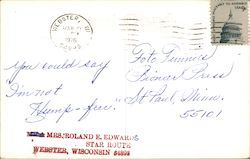 WEBSTER, WI
1976
You could say
I'm not
"Hump-free."
Foto Funnies
Pioneer Press
St. Paul, Minn.
55101
MRS/ROLAND E. EDWARDS
STAR ROUTE
WEBSTER, WISCONSIN 54893